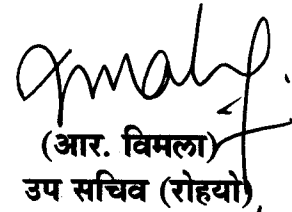 (आर. विमला)
उप सचिव (रोहयो)